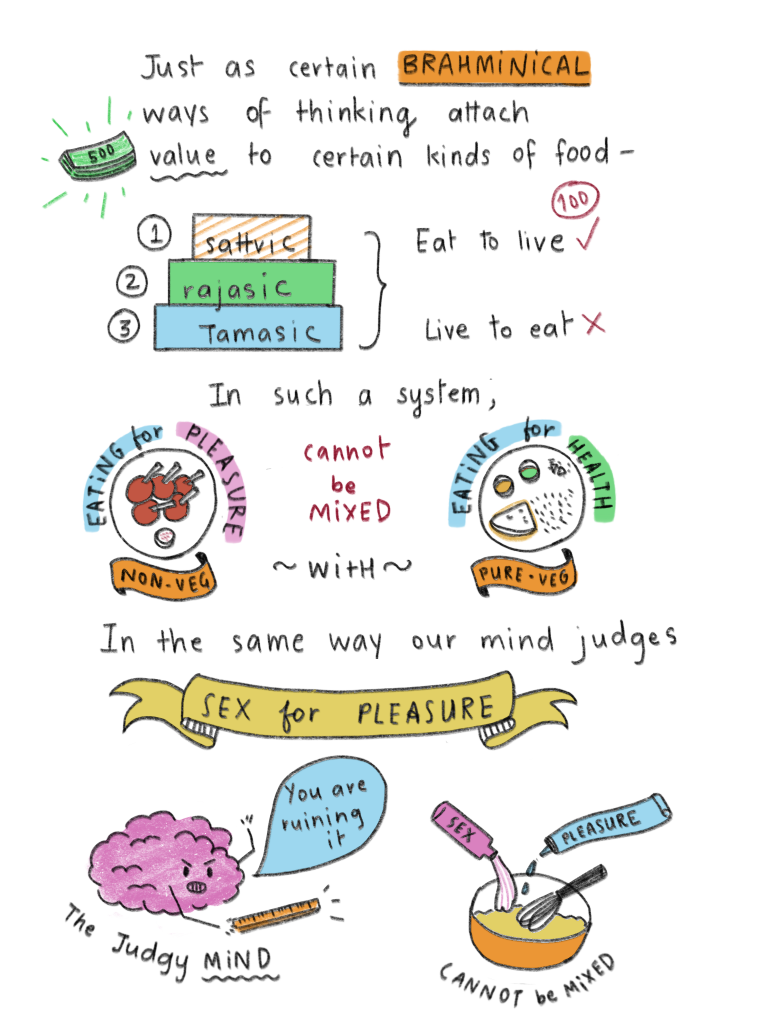 Just as certain BRAHMINICAL
ways of thinking attach
500
value to certain kinds of food -
100
1 sattvic
2 rajasic
3 Tamasic
Eat to live ✓
Live to eat X
In such a system,
EATING for PLEASURE
NON-VEG
cannot
be
MIXED
~ WITH ~
EATING for HEALTH
PURE·VEG
In the same way our mind judges
SEX for PLEASURE
You are
ruining
it
The Judgy MIND
SEX
PLEASURE
CANNOT be MIXED